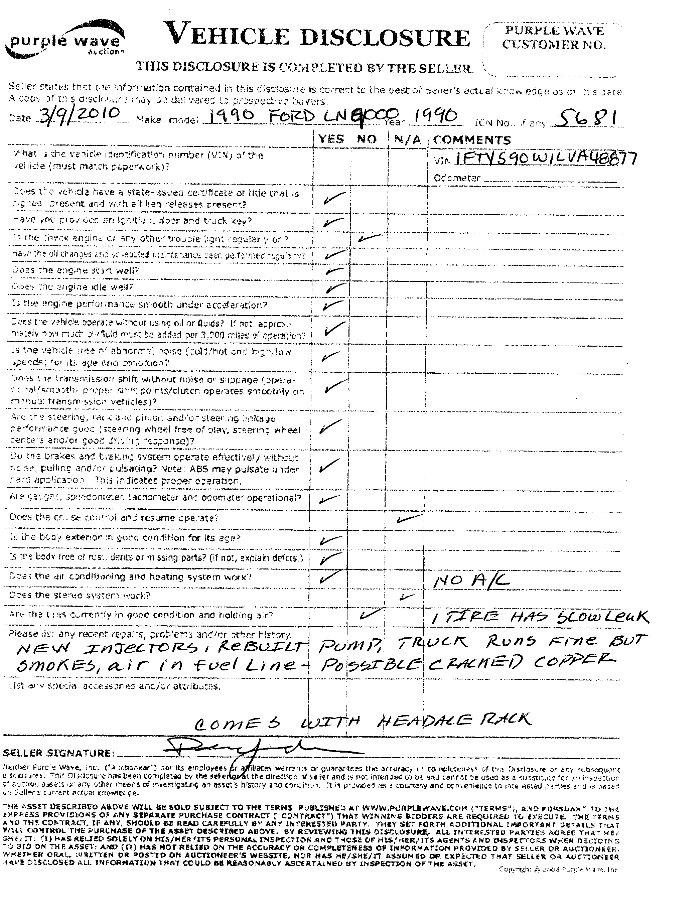 purple wave
auction
VEHICLE DISCLOSURE
PURPLE WAVE
CUSTOMER NO.
THIS DISCLOSURE IS COMPLETED BY THE SELLER.
Seller states that the information contained in this disclosure is correct to the best of owner's actual knowledge as of this date.
A copy of this disclosure may be delivered to prospective buyers.
Date 3/9/2010 Make model 1990 FORD LN9000 Year 1990 ICN No., if any 5681
YES NO N/A COMMENTS
What is the vehicle identification number (VIN) of the
vehicle (must match paperwork)?
VIN 1FTYS90W1LVA48877
Odometer
Does the vehicle have a state-issued certificate of title that is
signed, present and with all lien releases present?
Have you provided an ignition, door and truck key?
Is the check engine or any other trouble light regularly on?
Have the oil changes and scheduled maintenance been performed regularly?
Does the engine start well?
Does the engine idle well?
Is the engine performance smooth under acceleration?
Does the vehicle operate without using oil or fluids? If not, approxi-
mately how much oil/fluid must be added per 3,000 miles of operation?
Is the vehicle free of abnormal noise (cold/hot and high/low
speeds) for its age and condition?
Does the transmission shift without noise or slippage (opera-
tional/smooth, proper shift points/clutch operates smoothly on
manual transmission vehicles)?
Are the steering, rack and pinion and/or steering linkage
performance good (steering wheel free of play, steering wheel
centers and/or good driving response)?
Do the brakes and braking system operate effectively without
noise, pulling and/or pulsating? Note: ABS may pulsate under
hard application. This indicates proper operation.
Are gauges, speedometer, tachometer and odometer operational?
Does the cruise control and resume operate?
Is the body exterior in good condition for its age?
Is the body free of rust, dents or missing parts? (if not, explain defects.)
Does the air conditioning and heating system work?
NO A/C
Does the stereo system work?
Are the tires currently in good condition and holding air?
1 TIRE HAS SLOW LEAK
Please list any recent repairs, problems and/or other history.
NEW INJECTORS, REBUILT PUMP, TRUCK RUNS FINE BUT
SMOKES, air in fuel Line - POSSIBLE CRACKED COPPER
List any special accessories and/or attributes.
COMES WITH HEADALE RACK
SELLER SIGNATURE:
Neither Purple Wave, Inc. ("Auctioneer") nor its employees or affiliates warrants or guarantees the accuracy or completeness of this Disclosure or any subsequent
disclosures. This Disclosure has been completed by the seller or at the direction of seller and is not intended to be and cannot be used as a substitute for an inspection
of auction assets or any other means of investigating an asset's history and condition. It is provided as a courtesy and convenience to interested parties and is based
on Seller's current actual knowledge.
THE ASSET DESCRIBED ABOVE WILL BE SOLD SUBJECT TO THE TERMS PUBLISHED AT WWW.PURPLEWAVE.COM ("TERMS"), AND PURSUANT TO THE
EXPRESS PROVISIONS OF ANY SEPARATE PURCHASE CONTRACT ("CONTRACT") THAT WINNING BIDDERS ARE REQUIRED TO EXECUTE. THE TERMS
AND THE CONTRACT, IF ANY, SHOULD BE READ CAREFULLY BY ANY INTERESTED PARTY. THEY SET FORTH ADDITIONAL IMPORTANT DETAILS THAT
WILL CONTROL THE PURCHASE OF THE ASSET DESCRIBED ABOVE. BY REVIEWING THIS DISCLOSURE, ALL INTERESTED PARTIES AGREE THAT HE/
SHE/IT: (1) HAS RELIED SOLELY ON HIS/HER/ITS PERSONAL INSPECTION AND THOSE OF HIS/HER/ITS AGENTS AND INSPECTORS WHEN DECIDING
TO BID ON THE ASSET; AND (2) HAS NOT RELIED ON THE ACCURACY OR COMPLETENESS OF INFORMATION PROVIDED BY SELLER OR AUCTIONEER
WHETHER ORAL, WRITTEN OR POSTED ON AUCTIONEER'S WEBSITE, NOR HAS HE/SHE/IT ASSUMED OR EXPECTED THAT SELLER OR AUCTIONEER
HAVE DISCLOSED ALL INFORMATION THAT COULD BE REASONABLY ASCERTAINED BY INSPECTION OF THE ASSET.
Copyright @ 2008 Purple Wave, Inc.